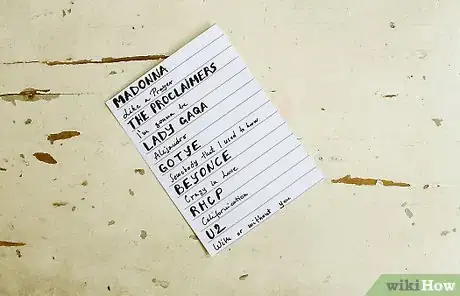 MADONNA
Like a Prayer
THE PROCLAIMERS
I'm gonna be
LADY GAGA
Alejandro
GOTYE
Somebody that I used to know
BEYONCE
Crazy in love
RHCP
Californication
U2
With or without you
wikiHow